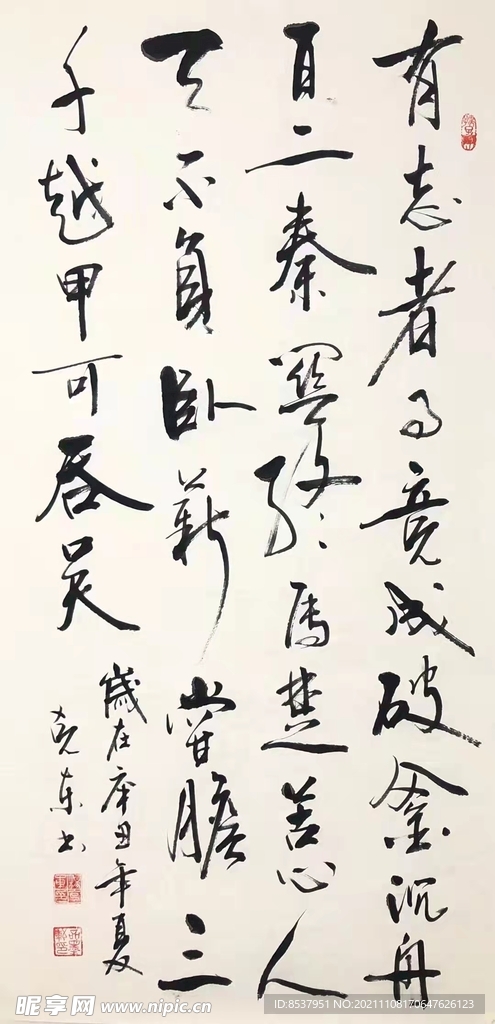 有志者事竟成破釜沉舟
百二秦關终属楚苦心人
天不負卧薪嘗膽三
千越甲可吞吴
歲在庚丑年夏
东书
昵享网 www.nipic.cn
ID:8537951 NO:20211108170647626123